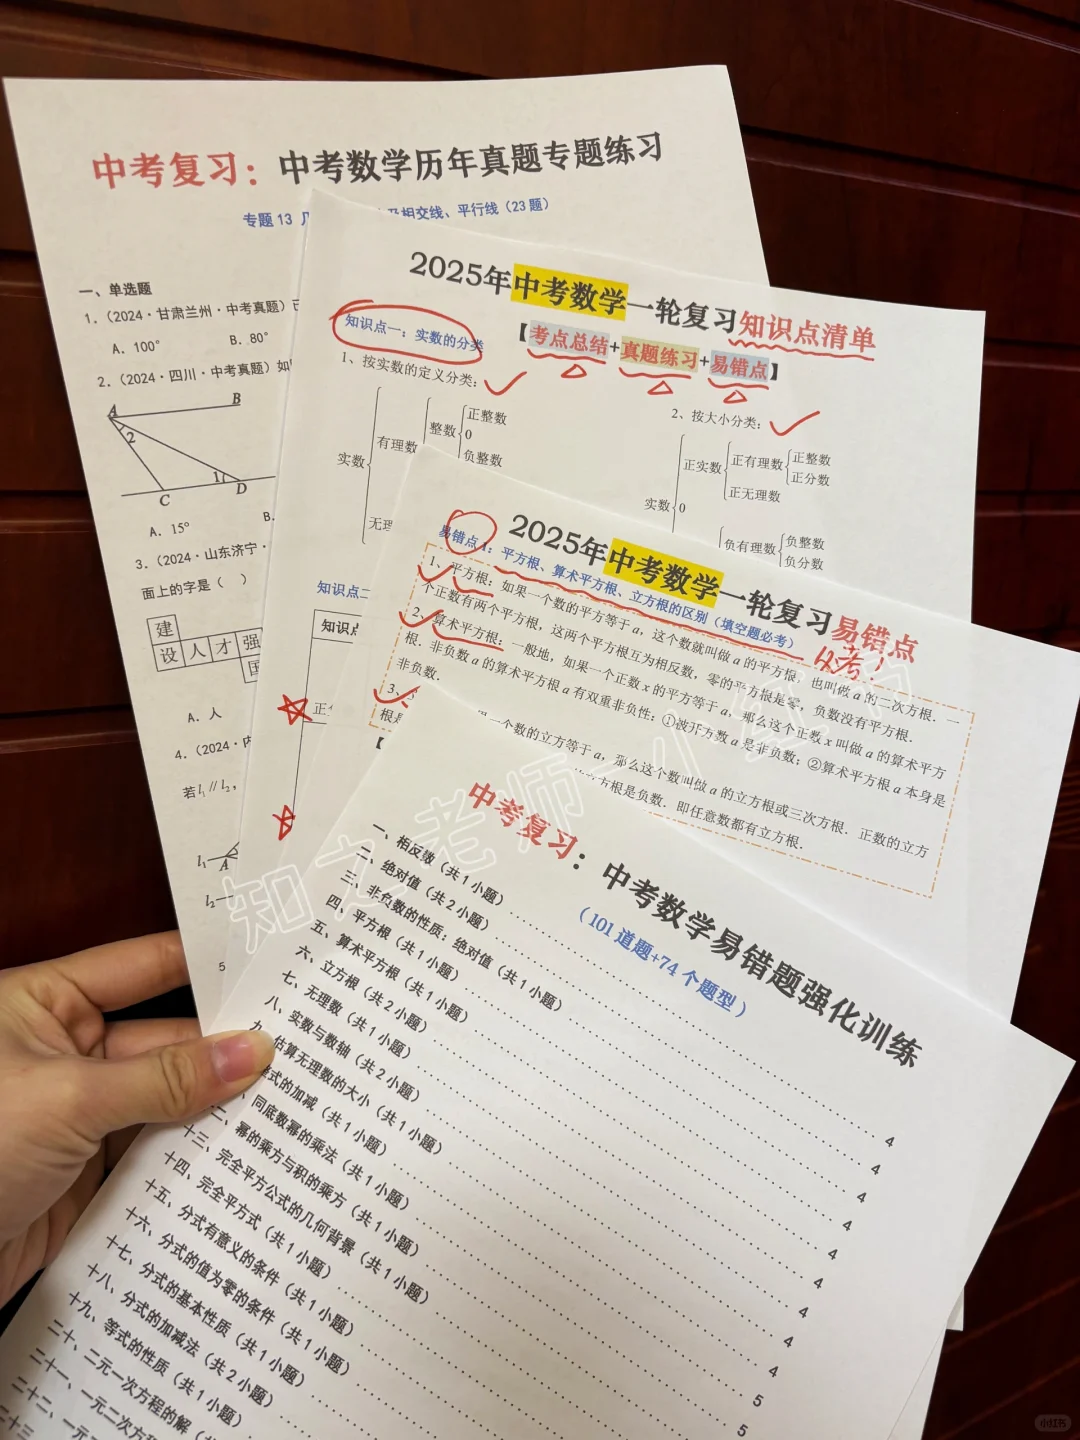 中考复习：中考数学历年真题专题练习
专题 13 几
及相交线、平行线（23 题）
一、单选题
1．（2024·甘肃兰州·中考真题）已
A．100°
B．80°
2．（2024·四川·中考真题）如
A
B
2
1
C
D
A．15°
B．
3．（2024·山东济宁·
面上的字是（ ）
建
设 人 才 强
国
A．人
4．（2024·内
若 l₁∥l₂，
l₁
A
l₂
5
2025年中考数学一轮复习知识点清单
【考点总结+真题练习+易错点】
知识点一：实数的分类
1、按实数的定义分类：
实数
有理数
整数
正整数
0
负整数
无理
2、按大小分类：
实数
正实数
正有理数
正整数
正分数
正无理数
0
负有理数
负整数
负分数
知识点二
知识点
正
2025年中考数学一轮复习易错点
易错点 1：平方根、算术平方根、立方根的区别（填空题必考）
必考！
1、平方根：如果一个数的平方等于 a，这个数就叫做 a 的平方根，也叫做 a 的二次方根．一
个正数有两个平方根，这两个平方根互为相反数，零的平方根是零，负数没有平方根．
2、算术平方根：一般地，如果一个正数 x 的平方等于 a，那么这个正数 x 叫做 a 的算术平方
根．非负数 a 的算术平方根 a 有双重非负性：①被开方数 a 是非负数；②算术平方根 a 本身是
非负数．
3、
一个数的立方等于 a，那么这个数叫做 a 的立方根或三次方根．正数的立方
根是
方根是负数．即任意数都有立方根．
【
中考复习：中考数学易错题强化训练
（101 道题+74 个题型）
一、相反数（共 1 小题）4
二、绝对值（共 2 小题）4
三、非负数的性质：绝对值（共 1 小题）4
四、平方根（共 1 小题）4
五、算术平方根（共 1 小题）4
六、立方根（共 2 小题）4
七、无理数（共 1 小题）4
八、实数与数轴（共 2 小题）4
九、估算无理数的大小（共 1 小题）5
整式的加减（共 1 小题）5
、同底数幂的乘法（共 1 小题）5
二、幂的乘方与积的乘方（共 1 小题）
十三、完全平方公式的几何背景（共 1 小题）
十四、完全平方式（共 1 小题）
十五、分式有意义的条件（共 1 小题）
十六、分式的值为零的条件（共 1 小题）
十七、分式的基本性质（共 1 小题）
十八、分式的加减法（共 2 小题）
十九、等式的性质（共 1 小题）
二十、二元一次方程的解（共
二十一、一元二次方程
二十二、一元
二十三、
知之老师-小红书
小红书